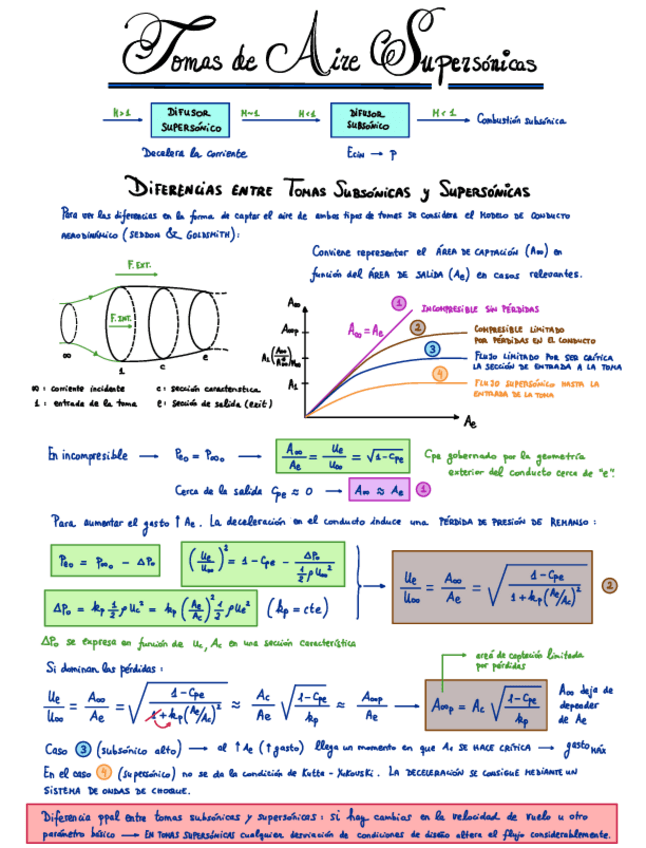 Tomas de Aire Supersónicas
M>1 DIFUSOR SUPERSÓNICO M~1 M<1 DIFUSOR SUBSÓNICO M<1 Combustión subsónica
Decelera la corriente Ecin → p
DIFERENCIAS ENTRE TOMAS SUBSÓNICAS Y SUPERSÓNICAS
Para ver las diferencias en la forma de captar el aire de ambos tipos de tomas se considera el MODELO DE CONDUCTO
AERODINÁMICO (SEDDON & GOLDSMITH):
Conviene representar el ÁREA DE CAPTACIÓN (A∞) en
función del ÁREA DE SALIDA (Ae) en casos relevantes.
F. EXT.
F. INT.
∞ 1 c e
∞: corriente incidente c: sección característica
1: entrada de la toma e: sección de salida (exit)
A∞
A∞p
A1
Ae
A∞ = Ae
1 INCOMPRESIBLE SIN PÉRDIDAS
2 COMPRESIBLE LIMITADO
POR PÉRDIDAS EN EL CONDUCTO
3 FLUJO LIMITADO POR SER CRÍTICA
LA SECCIÓN DE ENTRADA A LA TOMA
4 FLUJO SUPERSÓNICO HASTA LA
ENTRADA DE LA TOMA
En incompresible → Pe0 = P∞0 → A∞/Ae = ue/u∞ = √(1-Cpe) Cpe gobernado por la geometría
exterior del conducto cerca de "e".
Cerca de la salida Cpe ≈ 0 → A∞ ≈ Ae 1
Para aumentar el gasto ↑ Ae. La deceleración en el conducto induce una PÉRDIDA DE PRESIÓN DE REMANSO:
Pe0 = P∞0 - ΔP0 (ue/u∞)² = 1 - Cpe - ΔP0/(½ρu∞²)
ΔP0 = kp ½ρuc² = kp (Ae/Ac)² ½ρue² (kp = cte)
ue/u∞ = A∞/Ae = √((1-Cpe)/(1+kp(Ae/Ac)²)) 2
ΔP0 se expresa en función de uc, Ac en una sección característica
Si dominan las pérdidas:
área de captación limitada
por pérdidas
ue/u∞ = A∞/Ae = √((1-Cpe)/(1+kp(Ae/Ac)²)) ≈ Ac/Ae √((1-Cpe)/kp) ≈ A∞p/Ae → A∞p = Ac √((1-Cpe)/kp)
A∞ deja de
depender
de Ae
Caso 3 (subsónico alto) → al ↑Ae (↑gasto) llega un momento en que A1 SE HACE CRÍTICA → gasto MÁX
En el caso 4 (supersónico) no se da la condición de Kutta - Yukouski. LA DECELERACIÓN SE CONSIGUE MEDIANTE UN
SISTEMA DE ONDAS DE CHOQUE.
Diferencia ppal entre tomas subsónicas y supersónicas: si hay cambios en la velocidad de vuelo u otro
parámetro básico → EN TOMAS SUPERSÓNICAS cualquier desviación de condiciones de diseño altera el flujo considerablemente.